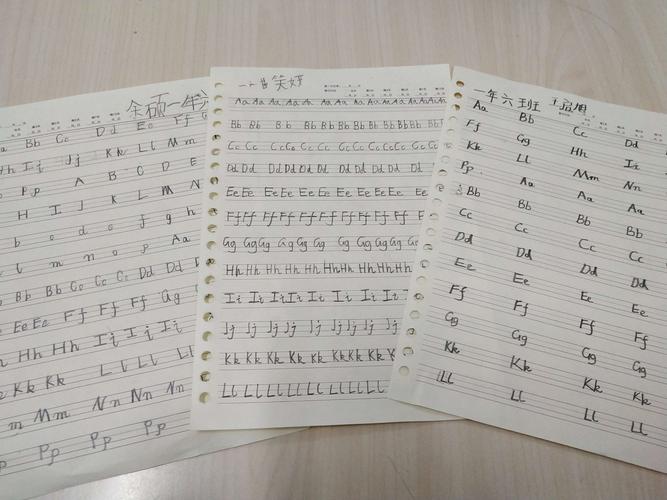 余硕一年六
Bb Cc Dd Ee Ff G
Hh Ii Jj Kk Ll Mm
Pp A B C D E
H I J K L M N
b c d e f g h
l m n o p Aa
Bb Bb Cc Cc Cc Dd Dd Dd
Ee Ee Ff Ff Ff Gg
Hh Hh Hh Ii Ii Ii
Kk Kk Ll Ll Ll
m Mm Nn Nn Nn
Pp Pp Pp
笑婷
Aa Aa Aa Aa Aa Aa Aa Aa Aa Aa Aa Aa
Bb Bb Bb Bb Bb Bb Bb Bb Bb Bb Bb
Cc Cc Cc Cc Cc Cc Cc Cc Cc Cc Cc
Dd Dd Dd Dd Dd Dd Dd Dd Dd Dd
Ee Ee Ee Ee Ee Ee Ee Ee Ee Ee
Ff Ff Ff Ff Ff Ff Ff Ff Ff Ff
Gg Gg Gg Gg Gg Gg Gg Gg Gg Gg
Hh Hh Hh Hh Hh Hh Hh Hh Hh Hh
Ii Ii Ii Ii Ii Ii Ii Ii Ii
Jj Jj Jj Jj Jj Jj Jj Jj Jj
Kk Kk Kk Kk Kk Kk Kk Kk
Ll Ll Ll Ll Ll Ll Ll Ll Ll
一年六班
Aa Bb Cc Dd
Ff Gg Hh Ii
Kk Ll Mm Nn
Pp Aa Aa Aa
Bb Bb Bb Bb
Cc Cc Cc Cc
Dd Dd Dd Dd
Ee Ee Ee Ee
Ff Ff Ff Ff
Gg Gg Gg Gg
Kk Kk Kk Kk
Ll Ll Ll Ll